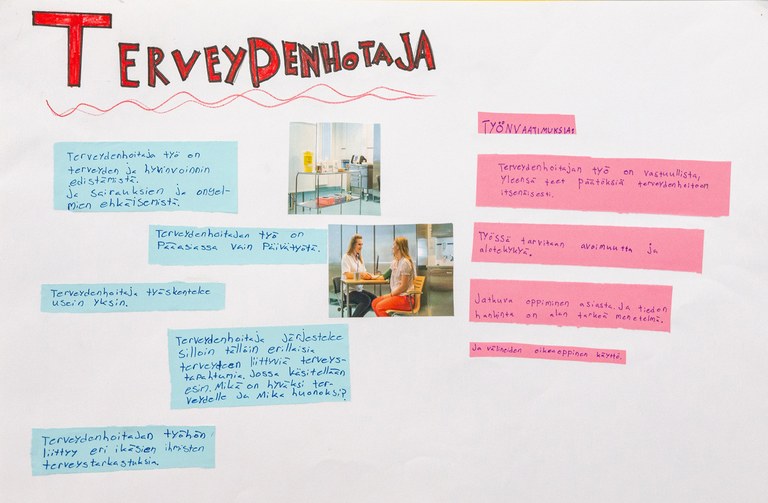 TERVEYDENHOTAJA
Terveydenhoitaja työ on
terveyden ja hyvinvoinnin
edistämistä.
ja sairauksien ja ongel-
mien ehkäisemistä.
Terveydenhoitajan työ on
Pääasiassa vain Päivätyötä.
Terveydenhoitaja työskentelee
usein yksin.
Terveydenhoitaja järjestelee
silloin tällöin erillaisia
terveyteen liittyviä terveys-
tapahtumia. Jossa käsitellään
esim. Mikä on hyväksi ter-
veydelle ja Mikä huonoksi?
Terveydenhoitajan työhön
liittyy eri ikäsien ihmisten
terveystarkastuksia.
TYÖNVAATIMUKSIA:
Terveydenhoitajan työ on vastuullista,
Yleensä teet päätöksiä terveydenhoitoon
itsenäisesti.
Työssä tarvitaan avoimuutta ja
alotekykyä.
Jatkuva oppiminen asiasta ja tiedon
hankinta on alan tärkeä menetelmä.
Ja välineiden oikeaoppinen käyttö.